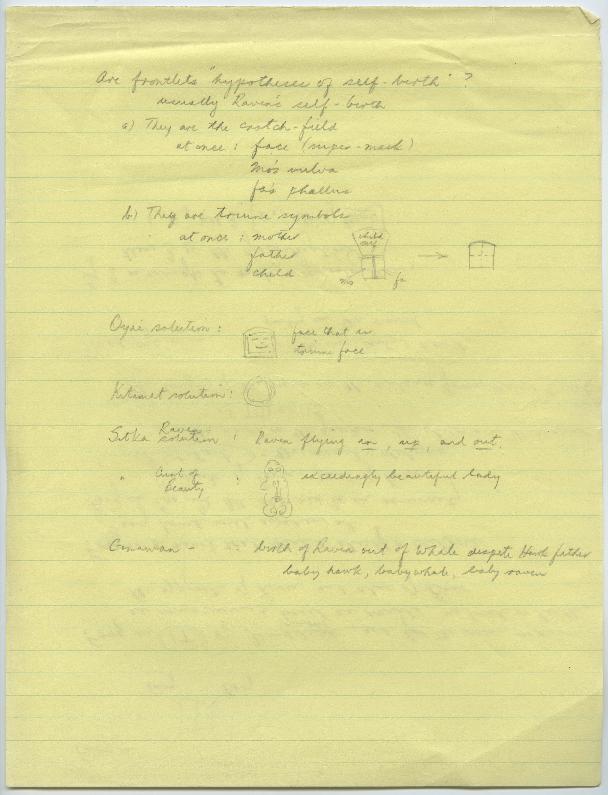 Are frontlets "hypotheses of self-birth"?
usually Raven's self-birth
a) They are the crotch-field
at once : face (super-mask)
mo's vulva
fa's phallus
b) They are triune symbols
at once : mother
father
child
child
self
mo fa
Oyai solution :
face that is
triune face
Kitimat solution :
Raven
Sitka solution : Raven flying in, up, and out.
" Aunt of
Beauty : exceedingly beautiful lady
- : birth of Raven out of Whale despite Hawk father
baby hawk, baby whale, baby raven